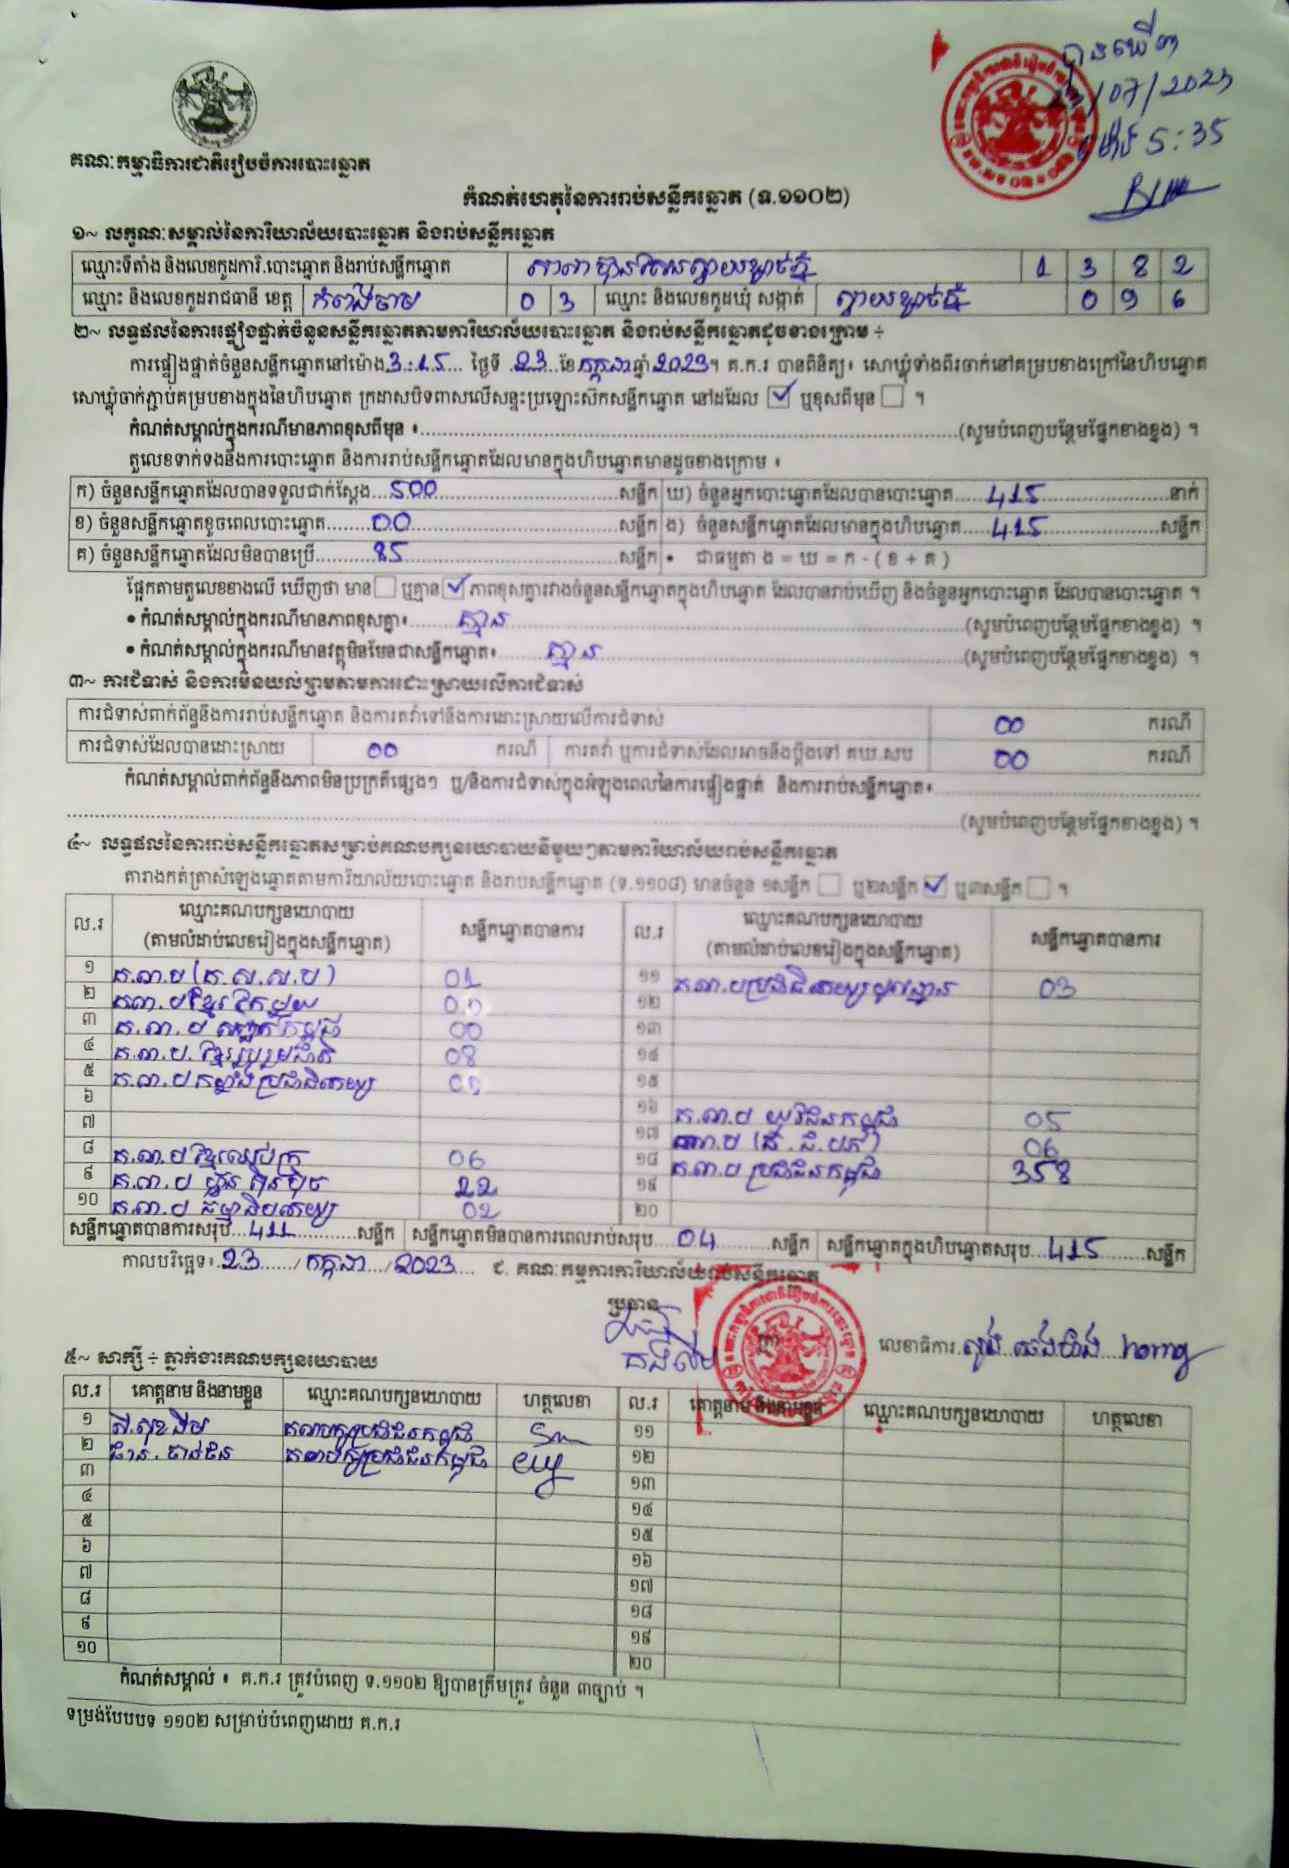 បានឃើញ
/07/2023
ម៉ោង 5:35
គណៈកម្មាធិការជាតិរៀបចំការបោះឆ្នោត
កំណត់ហេតុនៃការរាប់សន្លឹកឆ្នោត (ទ.១១០២)
១~ លក្ខណៈសម្គាល់នៃការិយាល័យបោះឆ្នោត និងរាប់សន្លឹកឆ្នោត
ឈ្មោះទីតាំង និងលេខកូដការិ.បោះឆ្នោត និងរាប់សន្លឹកឆ្នោត 1 3 8 2
ឈ្មោះ និងលេខកូដរាជធានី ខេត្ត កំពង់ចាម 0 3 ឈ្មោះ និងលេខកូដឃុំ សង្កាត់ 0 9 6
២~ លទ្ធផលនៃការផ្ទៀងផ្ទាត់ចំនួនសន្លឹកឆ្នោតតាមការិយាល័យបោះឆ្នោត និងរាប់សន្លឹកឆ្នោតដូចខាងក្រោម ÷
ការផ្ទៀងផ្ទាត់ចំនួនសន្លឹកឆ្នោតនៅម៉ោង 3:15 ថ្ងៃទី 23 ខែ កក្កដា ឆ្នាំ 2023។ គ.ក.រ បានពិនិត្យ៖ សោឃ្លុំទាំងពីរចាក់នៅគម្របខាងក្រៅនៃហិបឆ្នោត
សោឃ្លុំចាក់ភ្ជាប់គម្របខាងក្នុងនៃហិបឆ្នោត ក្រដាសបិទពាសលើសន្ទះប្រឡោះស៊កសន្លឹកឆ្នោត នៅដដែល ☑ ឬខុសពីមុន ☐ ។
កំណត់សម្គាល់ក្នុងករណីមានភាពខុសពីមុន ៖ (សូមបំពេញបន្ថែមផ្នែកខាងខ្នង) ។
តួលេខទាក់ទងនឹងការបោះឆ្នោត និងការរាប់សន្លឹកឆ្នោតដែលមានក្នុងហិបឆ្នោតមានដូចខាងក្រោម ៖
ក) ចំនួនសន្លឹកឆ្នោតដែលបានទទួលជាក់ស្តែង 500 សន្លឹក ឃ) ចំនួនអ្នកបោះឆ្នោតដែលបានបោះឆ្នោត 415 នាក់
ខ) ចំនួនសន្លឹកឆ្នោតខូចពេលបោះឆ្នោត 00 សន្លឹក ង) ចំនួនសន្លឹកឆ្នោតដែលមានក្នុងហិបឆ្នោត 415 សន្លឹក
គ) ចំនួនសន្លឹកឆ្នោតដែលមិនបានប្រើ 85 សន្លឹក • ជាធម្មតា ង = ឃ = ក - ( ខ + គ )
ផ្អែកតាមតួលេខខាងលើ ឃើញថា មាន ☐ ឬគ្មាន ☑ ភាពខុសគ្នារវាងចំនួនសន្លឹកឆ្នោតក្នុងហិបឆ្នោត ដែលបានរាប់ឃើញ និងចំនួនអ្នកបោះឆ្នោត ដែលបានបោះឆ្នោត ។
• កំណត់សម្គាល់ក្នុងករណីមានភាពខុសគ្នា៖ គ្មាន (សូមបំពេញបន្ថែមផ្នែកខាងខ្នង) ។
• កំណត់សម្គាល់ក្នុងករណីមានវត្ថុមិនមែនជាសន្លឹកឆ្នោត៖ គ្មាន (សូមបំពេញបន្ថែមផ្នែកខាងខ្នង) ។
៣~ ការជំទាស់ និងការមិនយល់ព្រមតាមការដោះស្រាយលើការជំទាស់
ការជំទាស់ពាក់ព័ន្ធនឹងការរាប់សន្លឹកឆ្នោត និងការតវ៉ាទៅនឹងការដោះស្រាយលើការជំទាស់ 00 ករណី
ការជំទាស់ដែលបានដោះស្រាយ 00 ករណី ការតវ៉ា ឬការជំទាស់ដែលអាចនឹងប្តឹងទៅ គឃ.សប 00 ករណី
កំណត់សម្គាល់ពាក់ព័ន្ធនឹងភាពមិនប្រក្រតីផ្សេងៗ ឬ/និងការជំទាស់ក្នុងអំឡុងពេលនៃការផ្ទៀងផ្ទាត់ និងការរាប់សន្លឹកឆ្នោត៖
(សូមបំពេញបន្ថែមផ្នែកខាងខ្នង) ។
៤~ លទ្ធផលនៃការរាប់សន្លឹកឆ្នោតសម្រាប់គណបក្សនយោបាយនីមួយៗតាមការិយាល័យរាប់សន្លឹកឆ្នោត
តារាងកត់ត្រាសំឡេងឆ្នោតតាមការិយាល័យបោះឆ្នោត និងរាប់សន្លឹកឆ្នោត (ទ.១១០៨) មានចំនួន ១សន្លឹក ☐ ឬ២សន្លឹក ☑ ឬ៣សន្លឹក ☐ ។
ល.រ ឈ្មោះគណបក្សនយោបាយ (តាមលំដាប់លេខរៀងក្នុងសន្លឹកឆ្នោត) សន្លឹកឆ្នោតបានការ ល.រ ឈ្មោះគណបក្សនយោបាយ (តាមលំដាប់លេខរៀងក្នុងសន្លឹកឆ្នោត) សន្លឹកឆ្នោតបានការ
១ គ.ណ.ប (គ.ស.ស.ប) 01 ១១ 03
២ គ.ណ.ប ខ្មែរឯកភាព ១២
៣ គ.ណ.ប 00 ១៣
៤ គ.ណ.ប. ខ្មែររួបរួមជាតិ 08 ១៤
៥ គ.ណ.ប កម្លាំងប្រជាធិបតេយ្យ ១៥
៦ ១៦ គ.ណ.ប យុវជនកម្ពុជា 05
៧ ១៧ គ.ណ.ប 06
៨ គ.ណ.ប ខ្មែរឈប់ក្រ 06 ១៨ គ.ណ.ប ប្រជាជនកម្ពុជា 358
៩ គ.ណ.ប ហ្វ៊ុនស៊ិនប៉ិច 22 ១៩
១០ គ.ណ.ប ធម្មាធិបតេយ្យ 02 ២០
សន្លឹកឆ្នោតបានការសរុប 411 សន្លឹក សន្លឹកឆ្នោតមិនបានការពេលរាប់សរុប 04 សន្លឹក សន្លឹកឆ្នោតក្នុងហិបឆ្នោតសរុប 415 សន្លឹក
កាលបរិច្ឆេទ៖ 23 / កក្កដា / 2023 ជ. គណៈកម្មការការិយាល័យរាប់សន្លឹកឆ្នោត
ប្រធាន
លេខាធិការ
៥~ សាក្សី ÷ ភ្នាក់ងារគណបក្សនយោបាយ
ល.រ គោត្តនាម និងនាមខ្លួន ឈ្មោះគណបក្សនយោបាយ ហត្ថលេខា ល.រ គោត្តនាម និងនាមខ្លួន ឈ្មោះគណបក្សនយោបាយ ហត្ថលេខា
១ គណបក្សប្រជាជនកម្ពុជា ១១
២ គណបក្សប្រជាជនកម្ពុជា ១២
៣ ១៣
៤ ១៤
៥ ១៥
៦ ១៦
៧ ១៧
៨ ១៨
៩ ១៩
១០ ២០
កំណត់សម្គាល់ ៖ គ.ក.រ ត្រូវបំពេញ ទ.១១០២ ឱ្យបានត្រឹមត្រូវ ចំនួន ៣ច្បាប់ ។
ទម្រង់បែបបទ ១១០២ សម្រាប់បំពេញដោយ គ.ក.រ